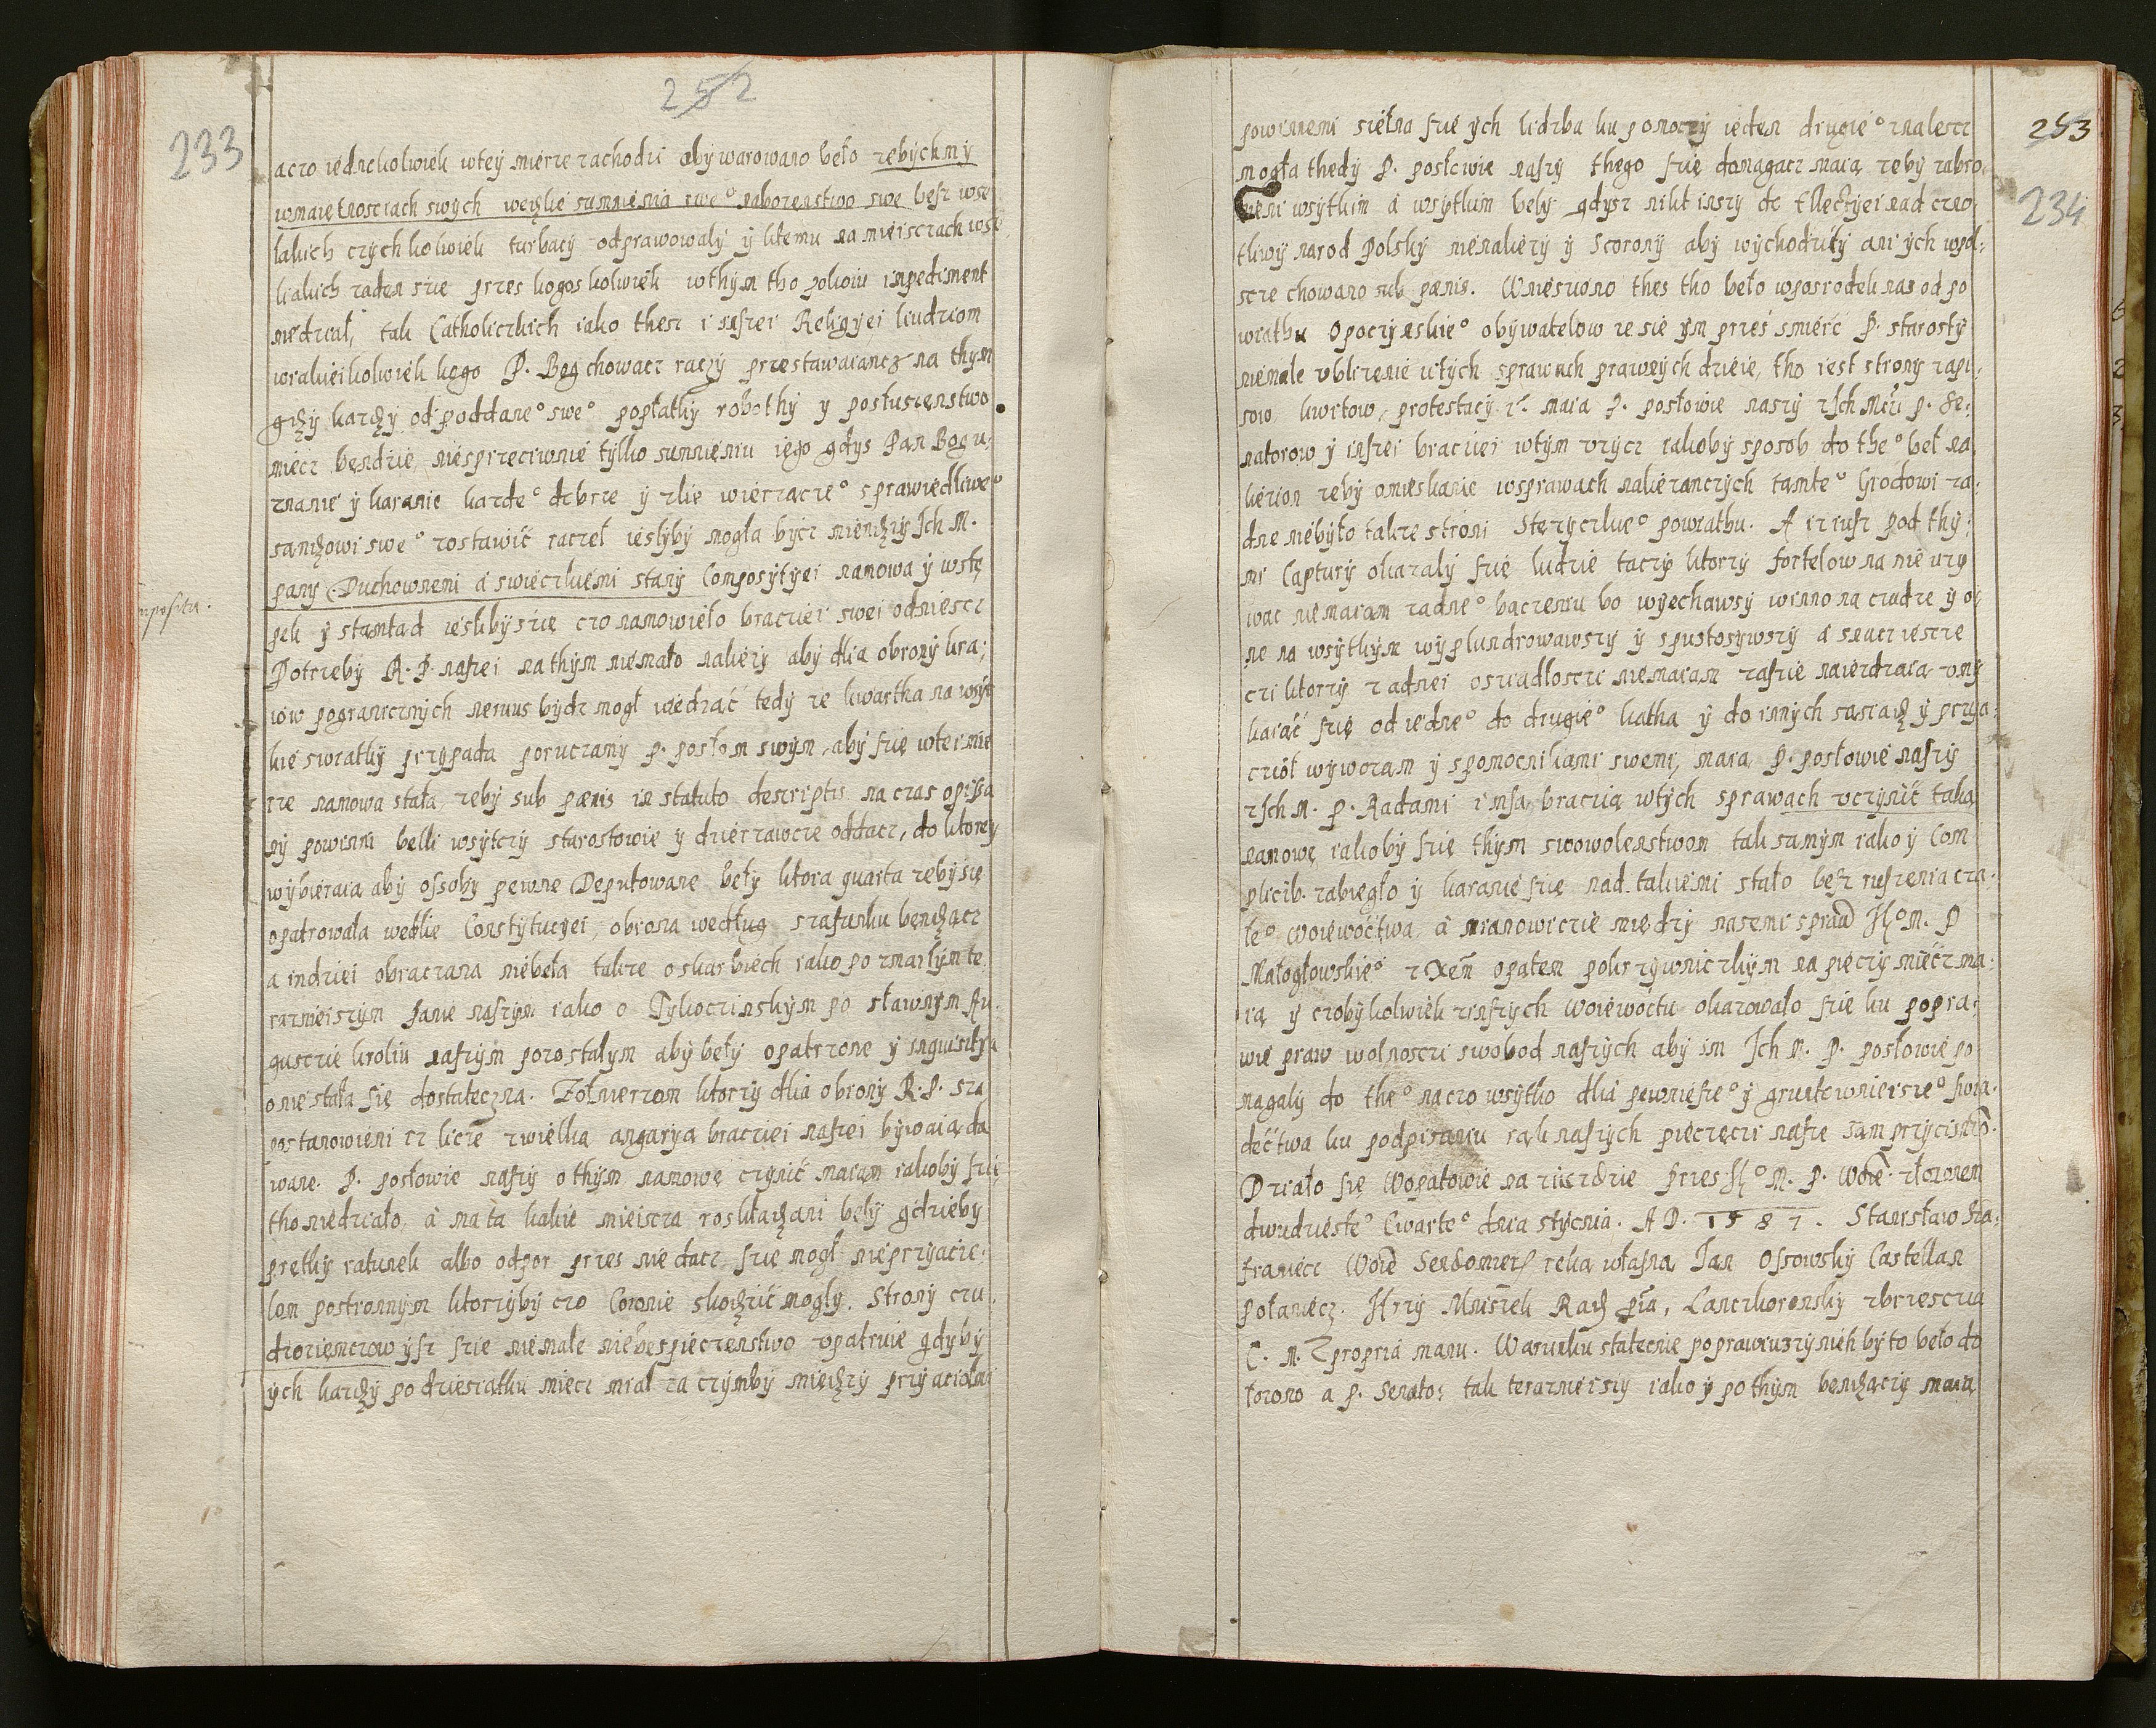 252
233
aczo iednokolwiek wtey mierze zachodzi aby warowano beło zebychmy
wmaiętnosciach swych wedlie sumnienia swe° naboźenstwo swe besz wsze
lakich czychkolwiek turbacÿ odprawowalÿ ÿ ktemu na mieiscrach wsze
liakich zaden szie przes kogoskolwiek wthym tho pokoiu impediment
niedział, tak Catholiczkich iako thesz inszei Religÿei liudziom
wzakieikolwiek kogo P. Bog chowacz raczÿ przestawaiancz na thym
gdzÿ kazdzÿ od poddane° swe° popłatkÿ robothÿ y posłuszenstwo
miecz bendzie, niesprzeciwnie tÿlko sumnieniu iego gdys Pan Bog u
znanie ÿ karanie kazde° dobrze ÿ zlie wierzacze° sprawiedliwe°
sandzowi swe° zostawić raczeł iesliby mogła bÿcz miendzÿ Ich M.
panÿ Duchownemi á swieczkiemi stanÿ Composÿtÿei namowa ÿ wstę
mposita.
pek ÿ stamtad iesliby szie czo namowieło bracziei swei odniescz
Potrzebÿ R. P. naszei na thym niemało nalieżÿ abÿ dlia obronÿ kra;
iow pogranicznÿch neruus bÿdz mogł wiedzać tedÿ ze kwartha na wsÿt
kie swiatkÿ przÿpada poruczamÿ p. posłom swÿm, abÿ szie wtei mie
rze namowa stała zebÿ sub pœnis in statuto descriptis na czas opisa
nÿ powinni belli wsÿtczÿ starostowie ÿ dzierzawcze oddacz, do ktorey
wÿbierania abÿ ossobÿ pewne Deputowane bełÿ ktora quarta zebÿ się
opatrowala wedlie Constÿtucÿei, obrona według szafunku bendzacz
a indziei obraczana niebeła takze o skarbiech iako po zmarłÿm te
raznieiszÿm Panie naszÿm iako o Tÿkoczinskÿm po sławnÿm Au
guscie kroliu naszÿm pozostałÿm abÿ bełÿ opatrzone ÿ inquisitia
o nie stała się dostateczna. Żołnierzom ktorzÿ dlia obronÿ R. P. sza
postanowieni cz licze zwielka angaria bracziei naszei bÿwaią da
wane. P. posłowie naszÿ o thÿm namowę czÿnić maiąm iakobÿ szie
tho niedziało, á na ta kakie mieiscza roskładzani belÿ gdziebÿ
prętkÿ ratunek albo odpor przes nie dacz się mogł nieprzÿiacie
lom postronnÿm ktorzÿbÿ czo Coronie skodzić moglÿ. Stronÿ cu
dzoziemczow ÿsz szie niemałe niebespieczenstwo vpatruie gdÿbÿ
ÿch kazdzÿ po dziesiatku miecz miał za czÿmbÿ miedzÿ prÿaciołmi
253
234
powinnemi siełna szie ÿch lidzba ku pomoczÿ ieden drugie° znalescz
mogła thedÿ P. posłowie naszÿ thego szie domagacz maią zebÿ zabro
nieni wsÿtkim á wsÿtkim belÿ gdysz nikt inszÿ do Ellectÿei nad czno
tliwÿ narod Polskÿ nienalieżÿ ÿ Scoronÿ abÿ wÿchodzilÿ ani ÿch wpol
scze chowano sub pœnis. Wniesiono thes tho beło wposrodek nas od po
wiathu Opoczÿnskie° obÿwatelow ze sie ÿm przes smierć P. starostÿ
niemale vblizenie wtÿch sprawach prawnÿch dzieie, tho iest stronÿ zapi
sow kwitow, protestacÿ r. maia P. posłowie naszÿ zIch Mći p. Se:
natorow ÿ inszei bracziei wtÿm vzÿcz iakobÿ sposob do the° beł na
liezion zebÿ omieskanie wsprawach nalieżanczÿch tamte° Grodowi za
dne niebÿło takze stroni Stezÿczkie° powiathu. A iz iusz pod thÿ
mi Capturÿ okazalÿ szie ludzie taczÿ ktorzÿ fortelow na nie uzÿ
wac niemaiam zadne° baczeniu bo wÿiechawsÿ winno na cudze ÿ o
ne na wsÿtkÿm wÿplundrowawszÿ ÿ spustosÿwszÿ á snacz iescze
czi ktorzÿ zadnei osiadłosczi niemaiam zaszie naiezdzaia vmÿ
kaiać szie od iedne° do drugie° kątha ÿ do innÿch sasiadz ÿ przÿia
cziół wÿwozam ÿ spomocnikami swemi, maia P. posłowie naszÿ
zIch M. p. Radami i insza braczią wtÿch sprawach vczÿnić taką
namowę iakobÿ szie thÿm swowolenstwom tak samÿm iako ÿ Com
plicib. zabiegło ÿ karanie szie nad takiemi stało besz ruszenia cza
łe° woiewoćtwa, á mianowiczie miedzÿ nasemi spraw J° M. P
Małogłowskie° z Xem opatem pokrzÿwniczkÿm na pieczÿ mieć ma
ią ÿ czobÿkolwiek zinszÿch woiewoctw okazowało szie ku popra
wie praw wolnosczi swobod naszÿch abÿ im Ich M. P. posłowie po
magalÿ do the° naczo wsÿtko dlia pewniesze° ÿ gruntownieisze° swia
dećtwa ku podpisaniu rąk naszÿch pieczęci nasze sam przÿcisnio.
Działo się Wopatowie na ziezdzie przes J° M. P. Woie. złozonem
dwudzieste° Cwarte° dnia stÿcznia. A D. 1587. Stanisław Sza
franiecz Woie Sendomirs ręka własną, Jan Ossowskÿ Castellan
połaniecz. Jerzÿ Mniszek Radz pia, Lanczkoronskÿ zbrzescia
C. M. propria manu. Warunku statecnie poprawiwszÿ niech bÿ to beło do
łozono a p. Senato: tak teraznieiszÿ iako ÿ po thÿm bendzaczÿ maia